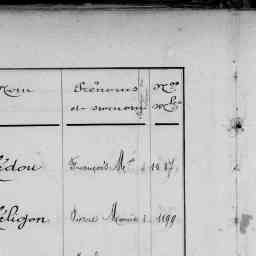 Nom Prénoms Nos
et surnoms Mles
édou François Mie 1187
éligon Pierre Marie 1199